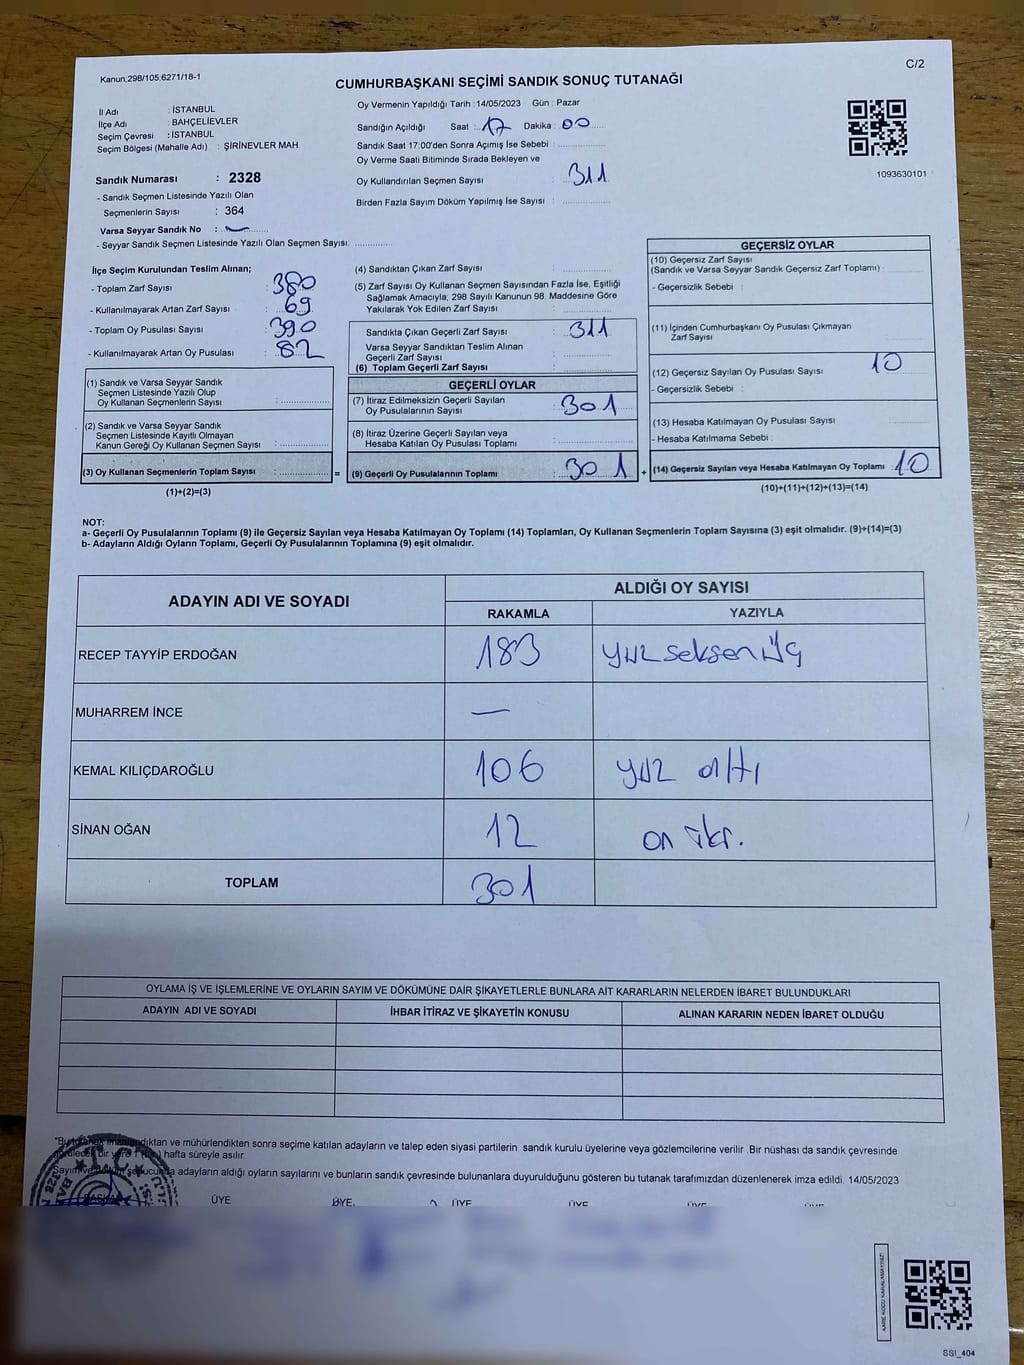 Kanun;298/105,6271/18-1
C/2
CUMHURBAŞKANI SEÇİMİ SANDIK SONUÇ TUTANAĞI
İl Adı : İSTANBUL
İlçe Adı : BAHÇELİEVLER
Seçim Çevresi : İSTANBUL
Seçim Bölgesi (Mahalle Adı) : ŞİRİNEVLER MAH.
Oy Vermenin Yapıldığı Tarih : 14/05/2023 Gün : Pazar
Sandığın Açıldığı Saat : 17 Dakika : 00
Sandık Saat 17:00'den Sonra Açımış İse Sebebi :
Oy Verme Saati Bitiminde Sırada Bekleyen ve
Oy Kullandırılan Seçmen Sayısı : 311
Birden Fazla Sayım Döküm Yapılmış İse Sayısı :
1093630101
Sandık Numarası : 2328
- Sandık Seçmen Listesinde Yazılı Olan
Seçmenlerin Sayısı : 364
Varsa Seyyar Sandık No :
- Seyyar Sandık Seçmen Listesinde Yazılı Olan Seçmen Sayısı:
İlçe Seçim Kurulundan Teslim Alınan;
- Toplam Zarf Sayısı : 380
- Kullanılmayarak Artan Zarf Sayısı : 69
- Toplam Oy Pusulası Sayısı : 390
- Kullanılmayarak Artan Oy Pusulası : 82
(1) Sandık ve Varsa Seyyar Sandık
Seçmen Listesinde Yazılı Olup
Oy Kullanan Seçmenlerin Sayısı :
(2) Sandık ve Varsa Seyyar Sandık
Seçmen Listesinde Kayıtlı Olmayan
Kanun Gereği Oy Kullanan Seçmen Sayısı :
(3) Oy Kullanan Seçmenlerin Toplam Sayısı :
(1)+(2)=(3)
(4) Sandıktan Çıkan Zarf Sayısı :
(5) Zarf Sayısı Oy Kullanan Seçmen Sayısından Fazla İse, Eşitliği
Sağlamak Amacıyla; 298 Sayılı Kanunun 98. Maddesine Göre
Yakılarak Yok Edilen Zarf Sayısı :
Sandıkta Çıkan Geçerli Zarf Sayısı : 311
Varsa Seyyar Sandıktan Teslim Alınan
Geçerli Zarf Sayısı :
(6) Toplam Geçerli Zarf Sayısı :
GEÇERLİ OYLAR
(7) İtiraz Edilmeksizin Geçerli Sayılan
Oy Pusulalarının Sayısı : 301
(8) İtiraz Üzerine Geçerli Sayılan veya
Hesaba Katılan Oy Pusulası Toplamı :
= (9) Geçerli Oy Pusulalarının Toplamı : 301
GEÇERSİZ OYLAR
(10) Geçersiz Zarf Sayısı
(Sandık ve Varsa Seyyar Sandık Geçersiz Zarf Toplamı) :
- Geçersizlik Sebebi :
(11) İçinden Cumhurbaşkanı Oy Pusulası Çıkmayan
Zarf Sayısı :
(12) Geçersiz Sayılan Oy Pusulası Sayısı : 10
- Geçersizlik Sebebi :
(13) Hesaba Katılmayan Oy Pusulası Sayısı :
- Hesaba Katılmama Sebebi :
+ (14) Geçersiz Sayılan veya Hesaba Katılmayan Oy Toplamı : 10
(10)+(11)+(12)+(13)=(14)
NOT:
a- Geçerli Oy Pusulalarının Toplamı (9) ile Geçersiz Sayılan veya Hesaba Katılmayan Oy Toplamı (14) Toplamları, Oy Kullanan Seçmenlerin Toplam Sayısına (3) eşit olmalıdır. (9)+(14)=(3)
b- Adayların Aldığı Oyların Toplamı, Geçerli Oy Pusulalarının Toplamına (9) eşit olmalıdır.
ADAYIN ADI VE SOYADI
ALDIĞI OY SAYISI
RAKAMLA YAZIYLA
RECEP TAYYİP ERDOĞAN 183 yüz seksen üç
MUHARREM İNCE —
KEMAL KILIÇDAROĞLU 106 yüz altı
SİNAN OĞAN 12 on iki.
TOPLAM 301
OYLAMA İŞ VE İŞLEMLERİNE VE OYLARIN SAYIM VE DÖKÜMÜNE DAİR ŞİKAYETLERLE BUNLARA AİT KARARLARIN NELERDEN İBARET BULUNDUKLARI
ADAYIN ADI VE SOYADI İHBAR İTİRAZ VE ŞİKAYETİN KONUSU ALINAN KARARIN NEDEN İBARET OLDUĞU
*Bu tutanak imzalandıktan ve mühürlendikten sonra seçime katılan adayların ve talep eden siyasi partilerin sandık kurulu üyelerine veya gözlemcilerine verilir .Bir nüshası da sandık çevresinde
görülecek bir yere 1 (bir) hafta süreyle asılır.
Sayım ve döküm sonucunda adayların aldığı oyların sayılarını ve bunların sandık çevresinde bulunanlara duyurulduğunu gösteren bu tutanak tarafımızdan düzenlenerek imza edildi. 14/05/2023
BAŞKAN ÜYE ÜYE ÜYE ÜYE ÜYE ÜYE
KARE KODU KARALAMAYINIZ!
SSI_404